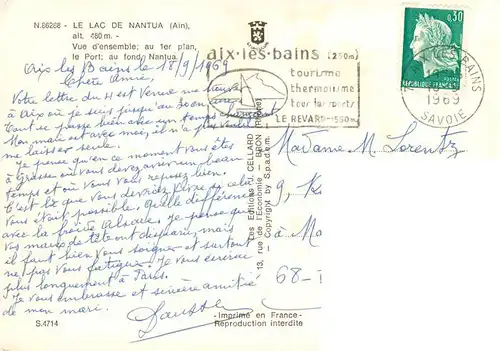 N.86268 - LE LAC DE NANTUA (Ain),
alt. 480 m. -
Vue d'ensemble; au 1er plan,
le Port; au fond Nantua.
Aix les Bains le 18/9/1969
Chère Amie,
Votre lettre du 11 est venue me trouver
à Aix où je suis jusqu'au
Tout se passe bien avec un temps
Mon mari est avec moi, il n'a pas voulu
me laisser seule.
Je pense qu'en ce moment vous êtes
à où vous devez avoir un beau
temps et où vous vous reposez bien.
C'est là que vous devriez vivre si cela
vous était possible. Quelle différence
avec la froide Alsace. Je pense que
vos maux de tête ont disparu, mais
il faut bien vous soigner et surtout
ne pas vous fatiguer. Je vous écrirai
plus longuement à Paris.
Je vous embrasse et sincère amitié
de mon mari.
S.4714
Les Editions J. CELLARD
13, rue de l'Économie - BRON (Rhône)
Copyright by S.p.a.d.e.m.
- Imprimé en France -
Reproduction interdite
aix-les-bains (250m)
tourisme
thermalisme
tous les sports
LE REVARD-1550m
0,30
REPUBLIQUE FRANÇAISE
LES BAINS
1969
SAVOIE
Madame M. Lorentz
9, K
à Mo
68-